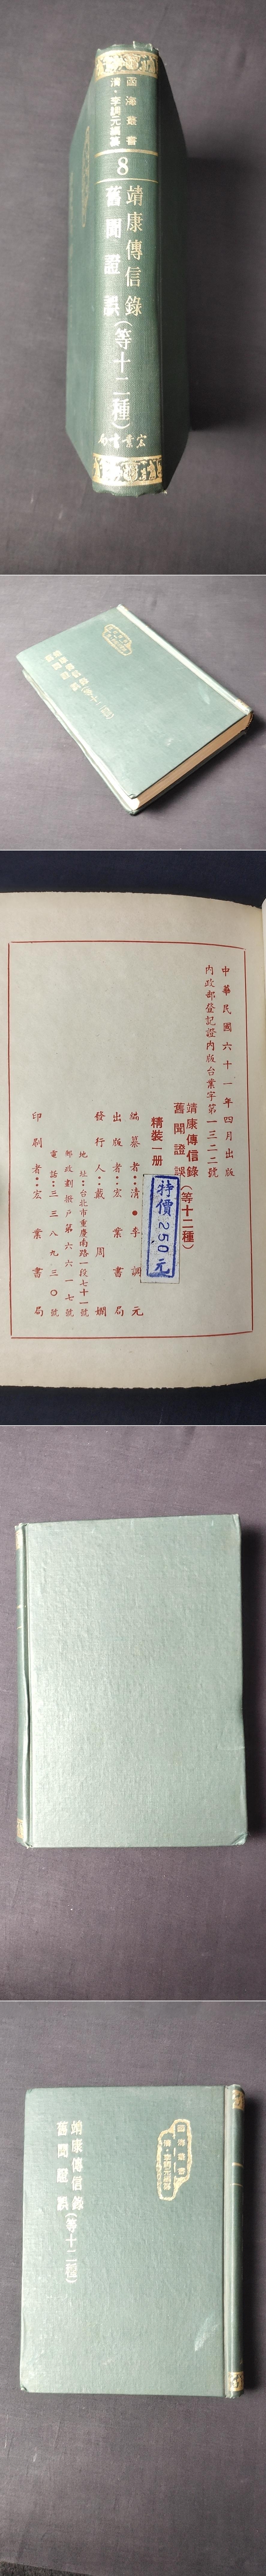 函海叢書
清·李調元編纂
8
靖康傳信錄
舊聞證誤(等十二種)
宏業書局
中華民國六十一年四月出版
內政部登記證內版台業字第一三二二號
靖康傳信錄
舊聞證誤(等十二種)
精裝一册
特價250元
編纂者:清●李調元
出版者:宏業書局
發行人:戴周嫻
地址:台北市重慶南路一段七十一號
郵政劃撥戶第六六一七號
電話:三三八九三〇號
印刷者:宏業書局
函海叢書
清·李調元編纂
靖康傳信錄
舊聞證誤(等十二種)